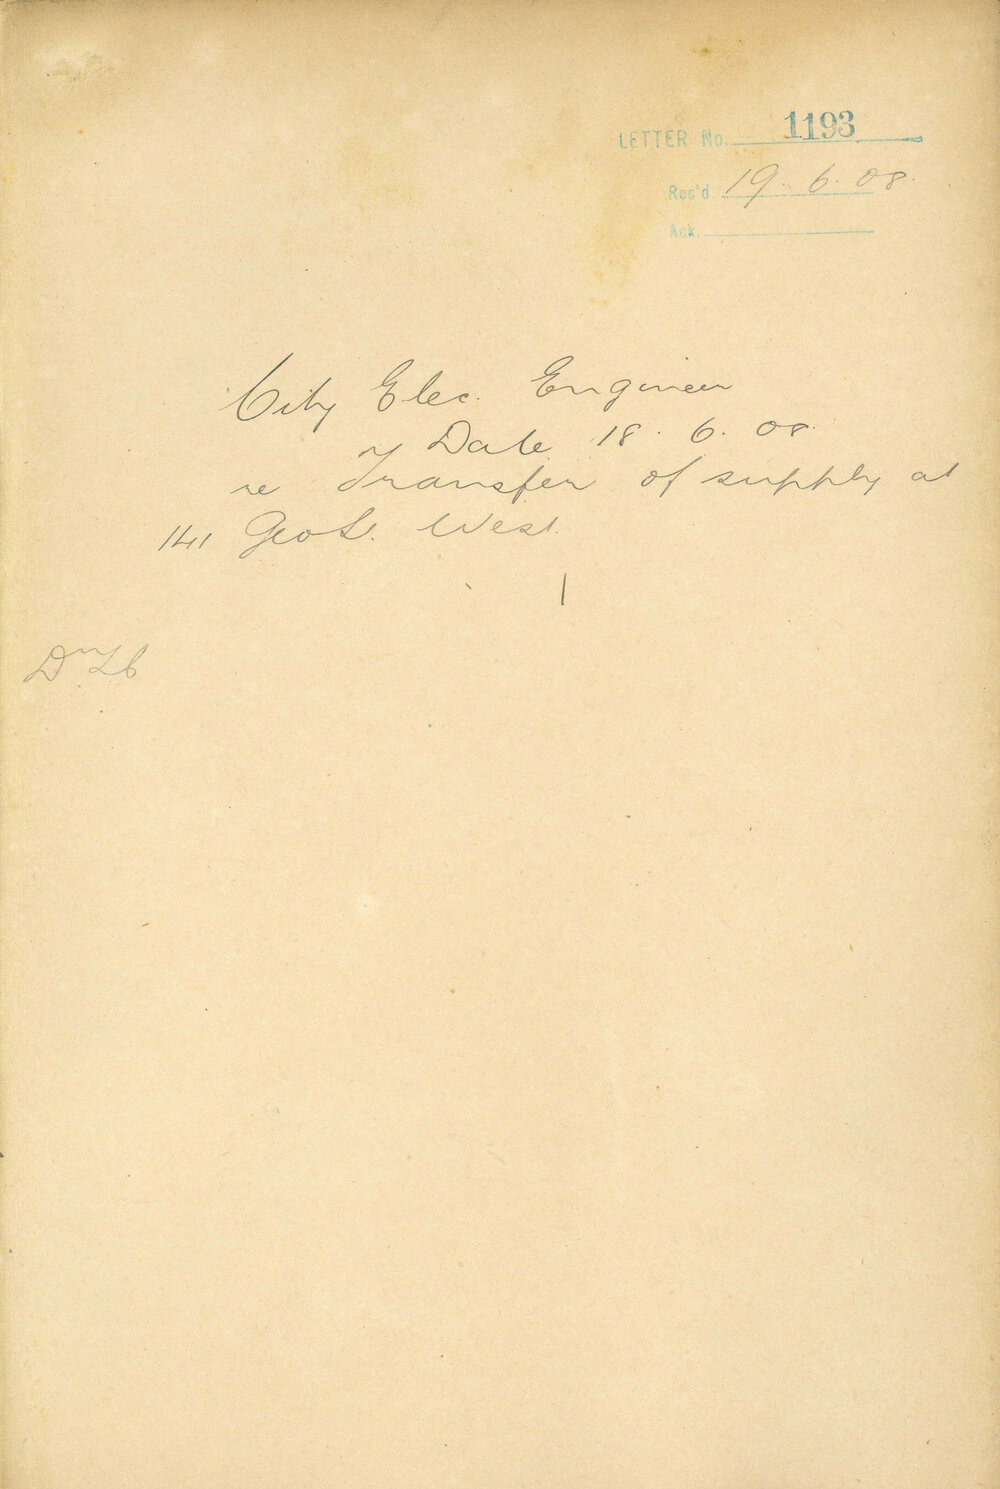 LETTER No. 1193
Rec'd 19. 6. 08.
Ack.
City Elec. Engineer
of Date 18. 6. 08.
re Transfer of supply at
141 Geo St. West.